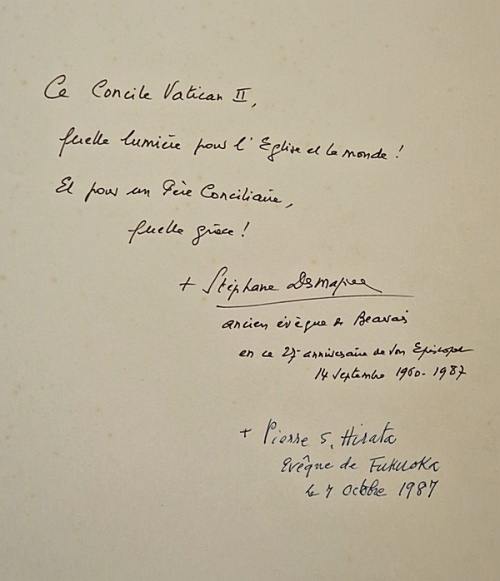 Ce Concile Vatican II,
quelle lumière pour l'Eglise et le monde !
Et pour un Père Conciliaire,
quelle grâce !
+ Stéphane Desmazier
ancien évêque de Beauvais
en ce 27e anniversaire de son Episcopat
14 septembre 1960 - 1987
+ Pierre S. Hirata
Evêque de Fukuoka
le 7 octobre 1987